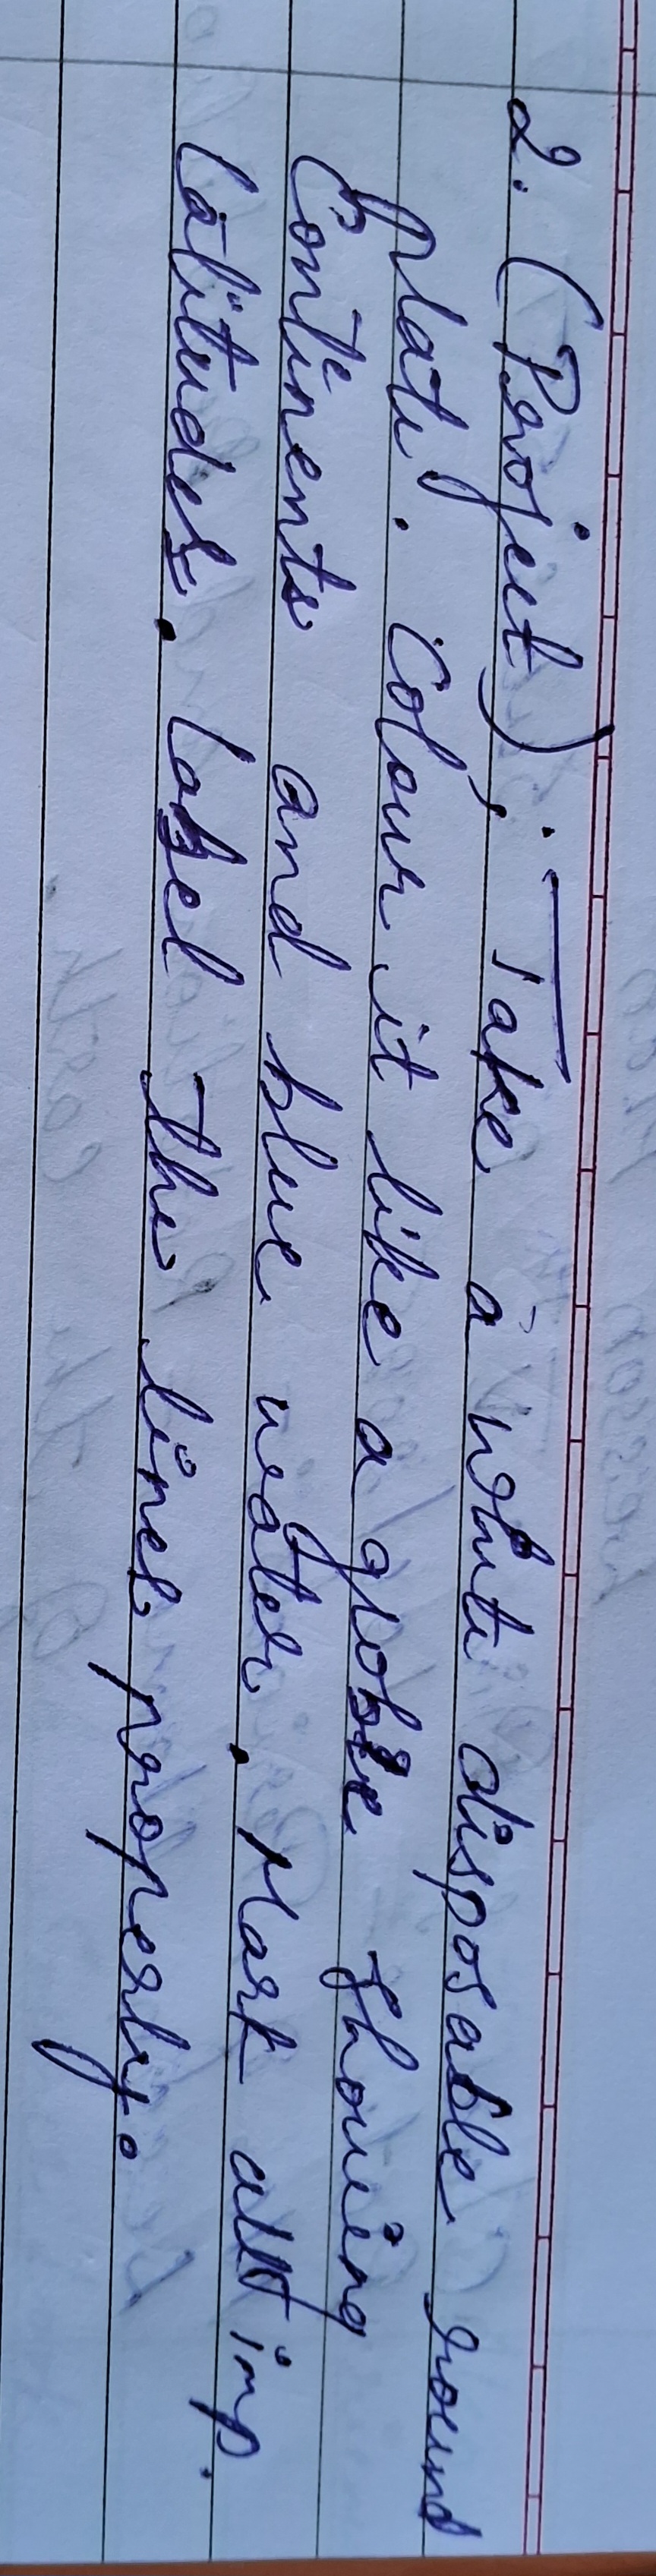 2. (Project) :- Take a white disposable round
plate. Colour it like a globe showing
Continents and blue water. Mark all imp.
latitudes. Label the lines properly.